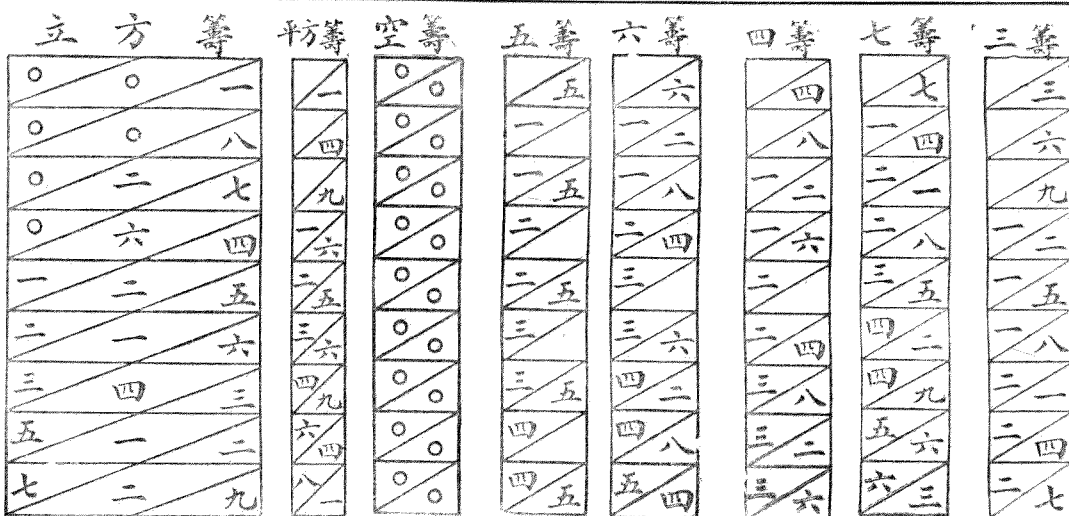 立方籌 平方籌 空籌 五籌 六籌 四籌 七籌 三籌
○ ○ 一 一 ○ ○ 五 六 四 七 三
○ ○ 八 四 ○ ○ 一 一 二 八 一 四 六
○ 二 七 九 ○ ○ 一 五 一 八 一 二 二 一 九
○ 六 四 一 六 ○ ○ 二 二 四 一 六 二 八 一 二
一 二 五 二 五 ○ ○ 二 五 三 二 三 五 一 五
二 一 六 三 六 ○ ○ 三 三 六 二 四 四 二 一 八
三 四 三 四 九 ○ ○ 三 五 四 二 三 八 四 九 二 一
五 一 二 六 四 ○ ○ 四 四 八 三 二 五 六 二 四
七 二 九 八 一 ○ ○ 四 五 五 四 三 六 六 三 二 七